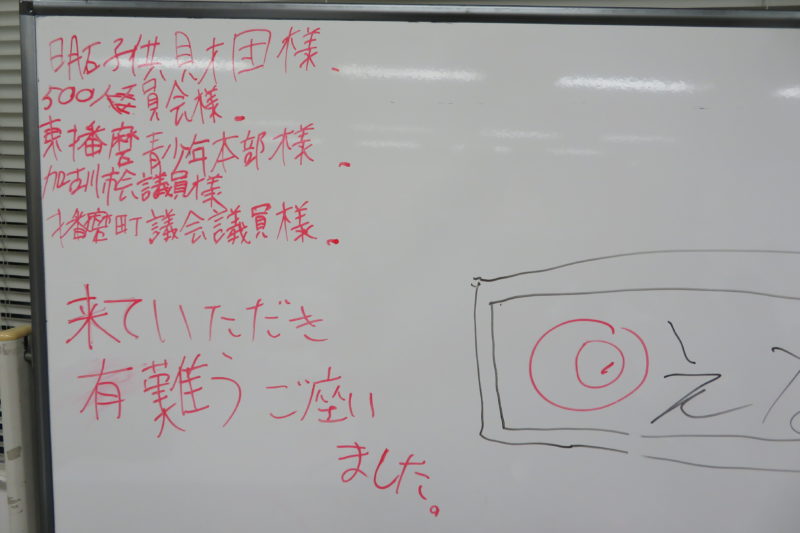 明石子供財団様.
500人委員会様.
東播磨青少年本部様.
加古川市会議員様
播磨町議会議員様.
来ていただき
有難うご座い
ました。
え